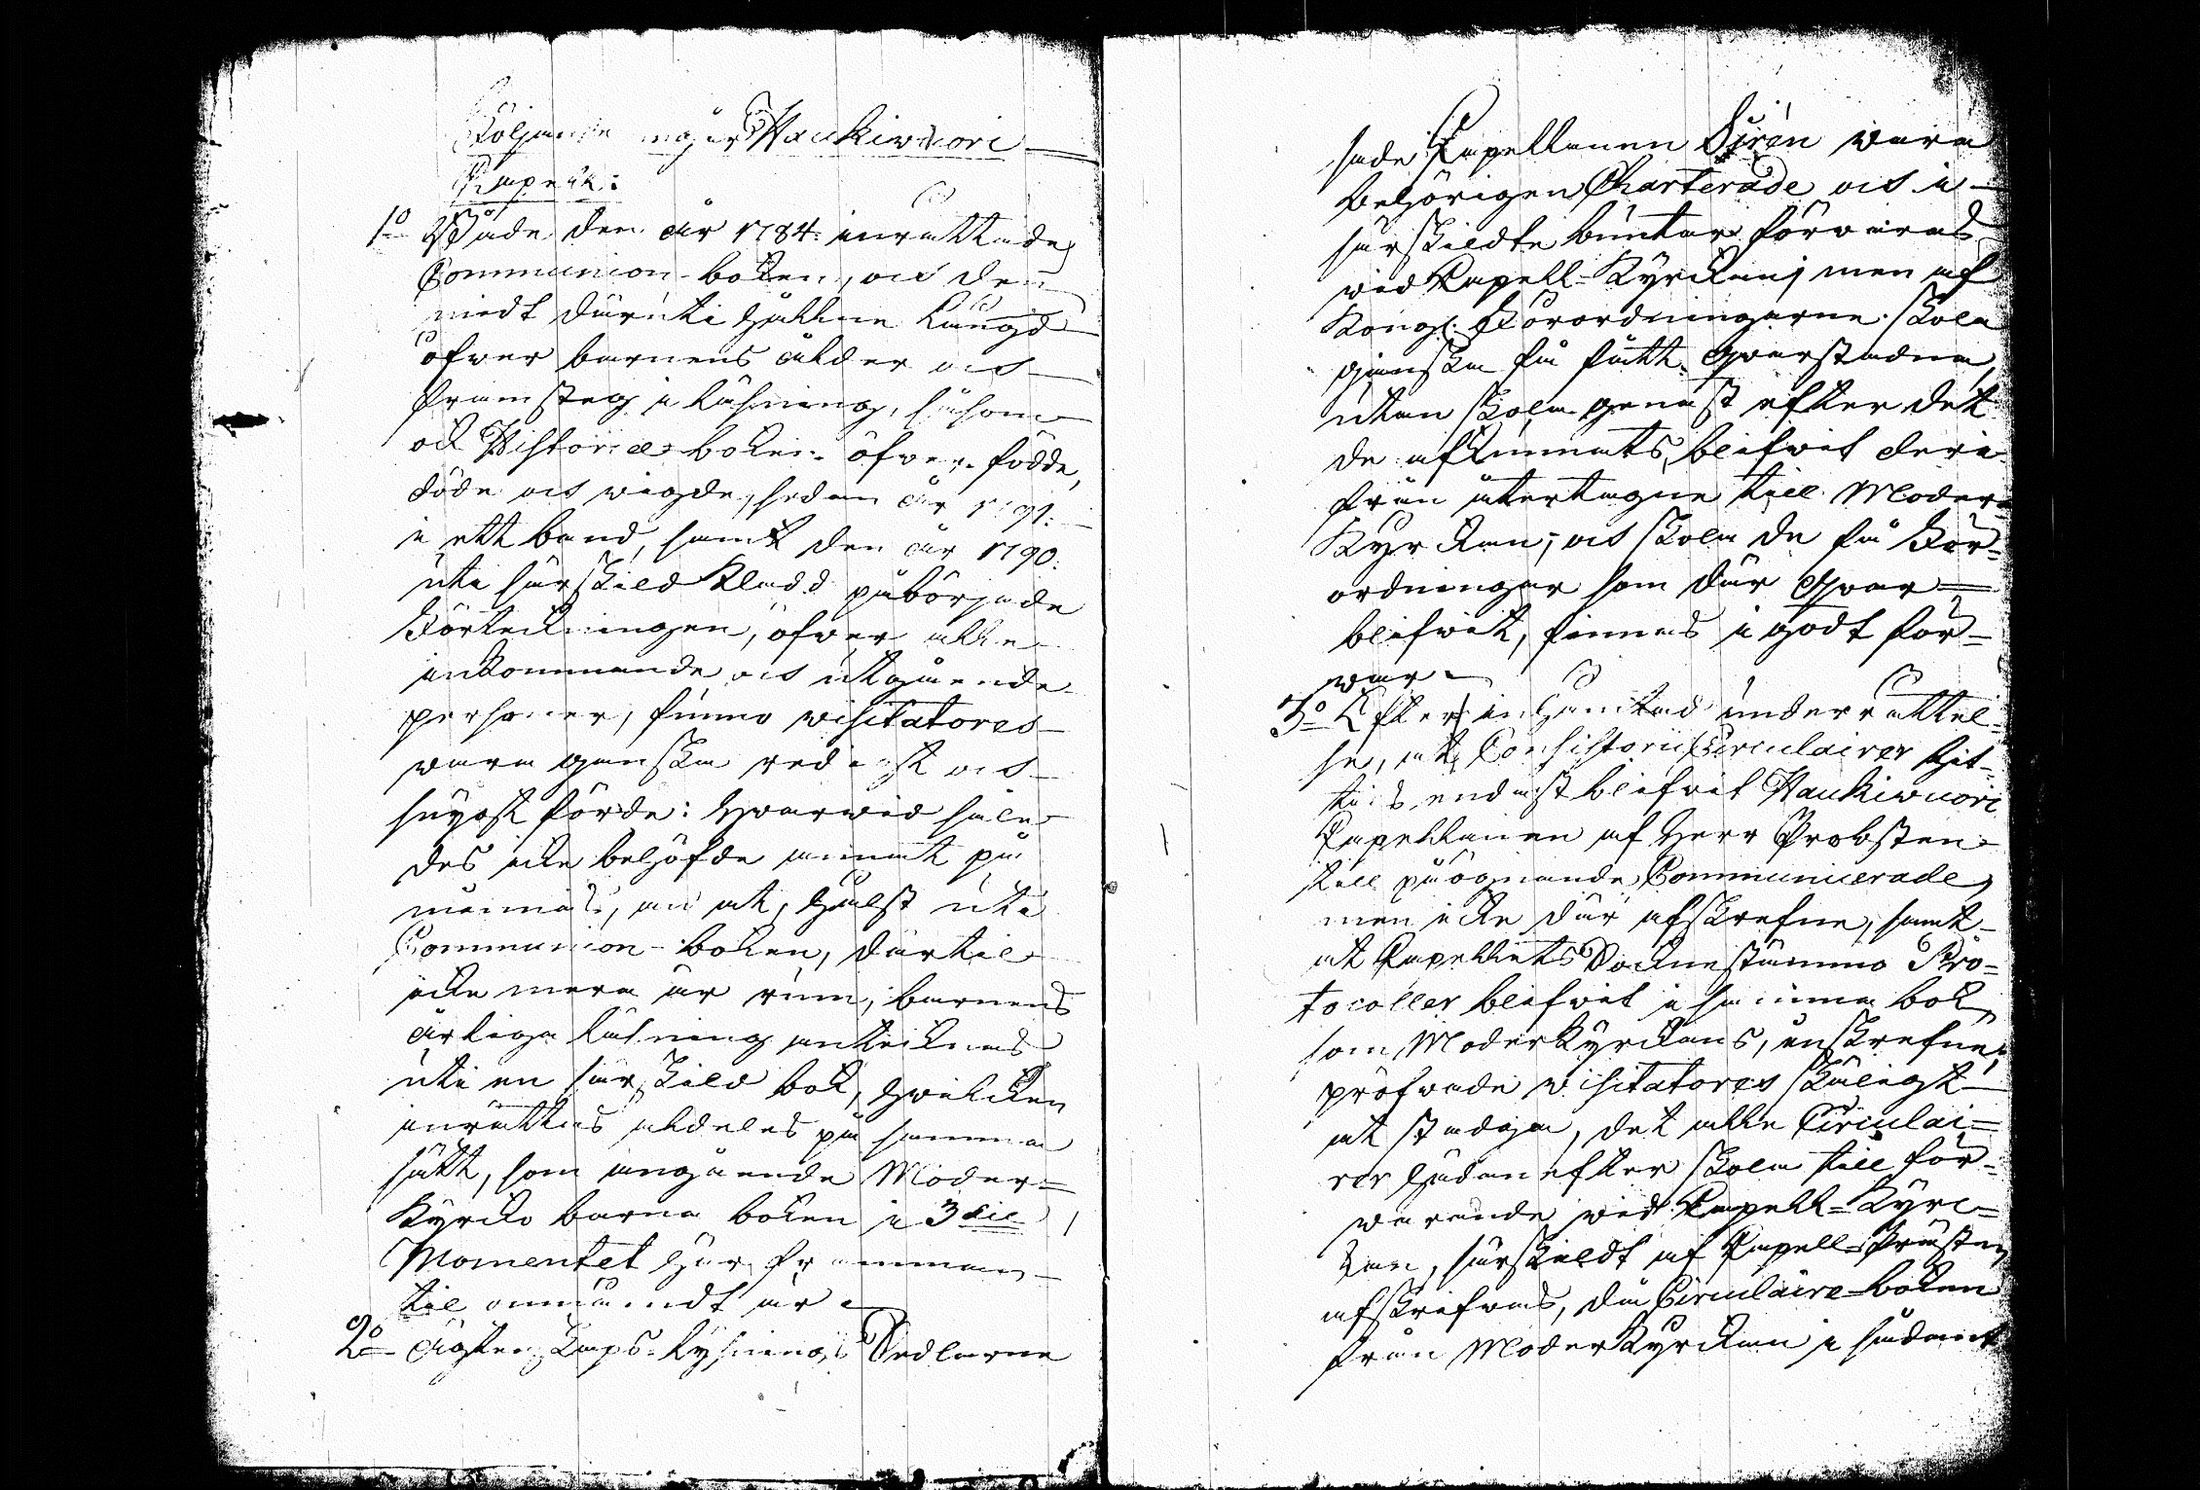 Följande angår Haukiwuori
Capell:
1o Både den år 1784 inrättade
Communion-boken, och den
medt däruti hållne Längd
öfwer barnens ålder och
framsteg i läsning, såsom
ock Historiæ-boken öfwer födde,
döde och wigde, sedan år 1791.
i ett band, samt den år 1790.
uti särskild Kladd påbörjade
Förteckningen, öfwer alla
inkommande och utgående
personer, funno visitatores
wara ganska redigt och
snygt förde: Hwarwid såle-
des icke behöfde annat på-
minnas, än at, hälst uti
Communion-boken, därtil
icke mera är rum, barnens
årliga läsning antecknas
uti en särskild bok, hwilcken
inrättas aldeles på samma
sätt, som angående Moder=
Kyrcko barna boken i 3die
Momentet här framman-
til omnämdt är.
2o Ägtenskaps-Lysnings Sedlarne
sade Capellanen Sirén wara
behörigen Charterade och i
särskildte buntar förwaras
wid Capell-Kyrckan; men af
Kongl. Förordningarne skola
ganska få fått qwarstadna,
utan skola genast efter det
de afkunnats, blifwit deri-
från återtagne till Moder-
Kyrckan; och skola de få För=
ordningar som där qwar=
blifwit, finnas i godt för=
war.
3o Efter inhämtad underrättel-
se, at Consistorii Circulairer hit-
tils endast blifwit Haukiwuori
Capellanen af Herr Probsten
till påögnande Communicerade,
men icke där afskrefne, samt
at Capellets Sockne stämmo Pro=
tocoller blifwit i samma bok,
som Moderkyrckans, inskrefne,
pröfwade visitatores skäligt
at stadga, det alla Circulai=
rer hädanefter skola till för=
warande wid Capell-Kyrc=
kan, särskildt af Capell-Prästen
afskrifwas, då Circulaire-boken
från Moderkyrckan i sådant